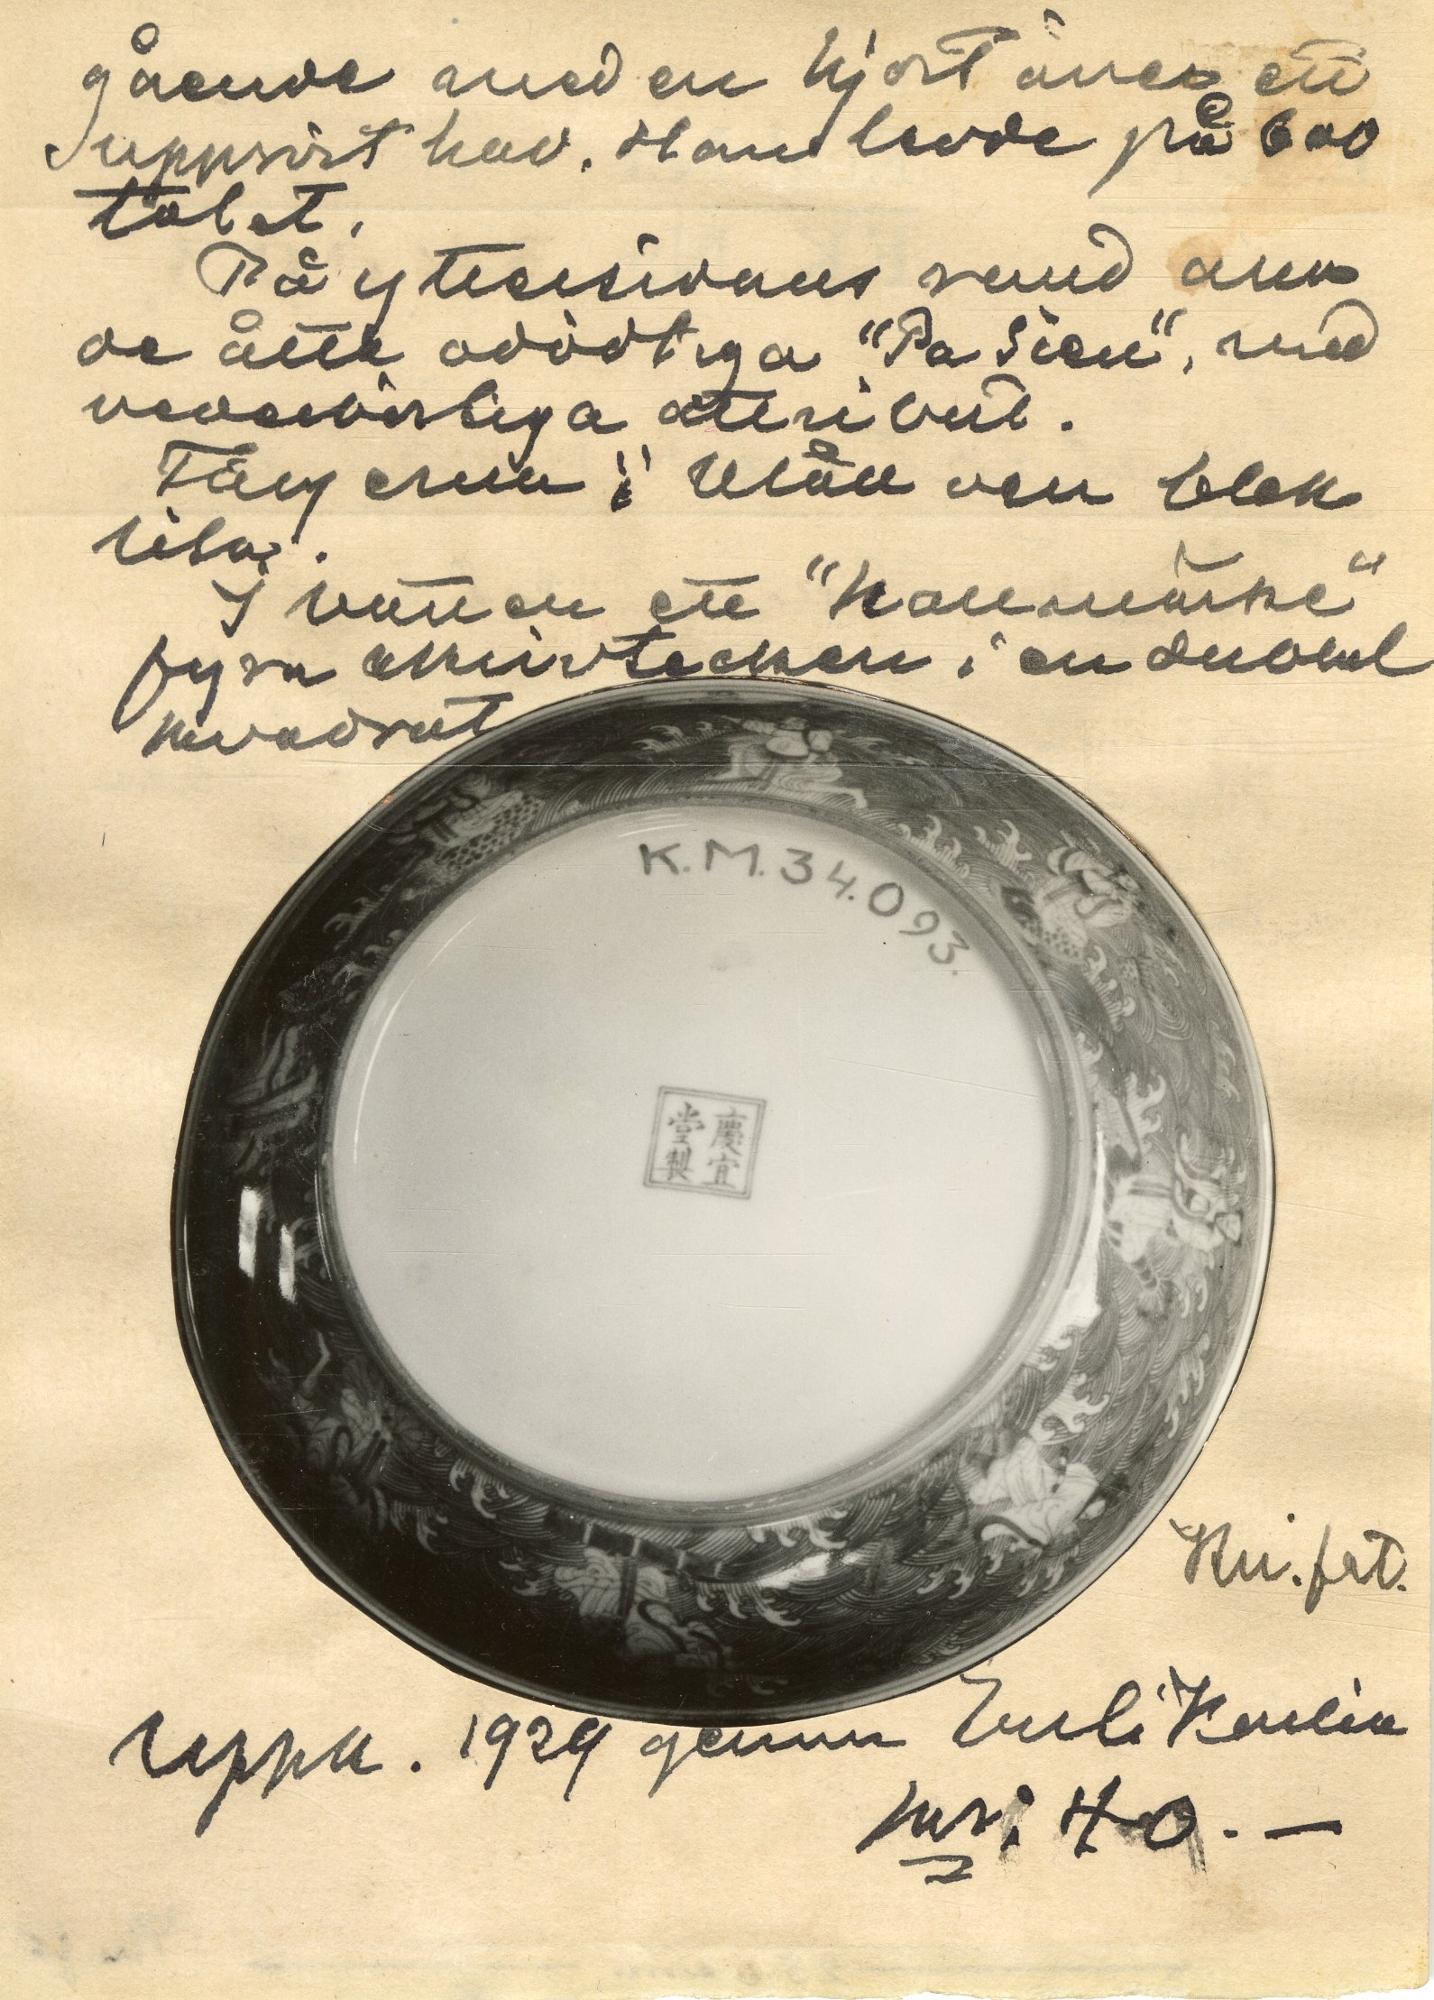 gående med en hjort över ett
upprört hav. Han levde på 600
talet.
På yttersidans rund
de åtta odödliga "Pa Sien", med
vederbörliga attribut.
Färgerna: blått och blek
lila.
I botten ett "Hallmärke"
fyra skrivtecken i en dubbel
kvadrat
K.M.34.093.
慶宜
堂製
Kni.fat.
uppk. 1929 genom Emil Karlin
kr: 40.—